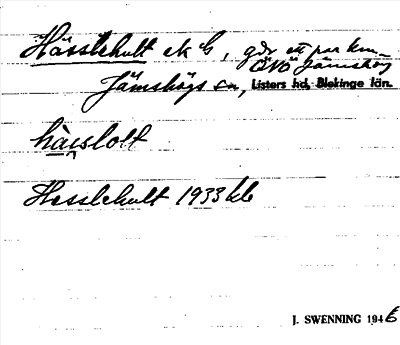 Hässlehult ek b, gdr ett par km
ÖNÖ Jämshög
Jämshögs sn, Listers hd, Blekinge län.
hàslolt
Hesslehult 1933 kb
J. SWENNING 1946